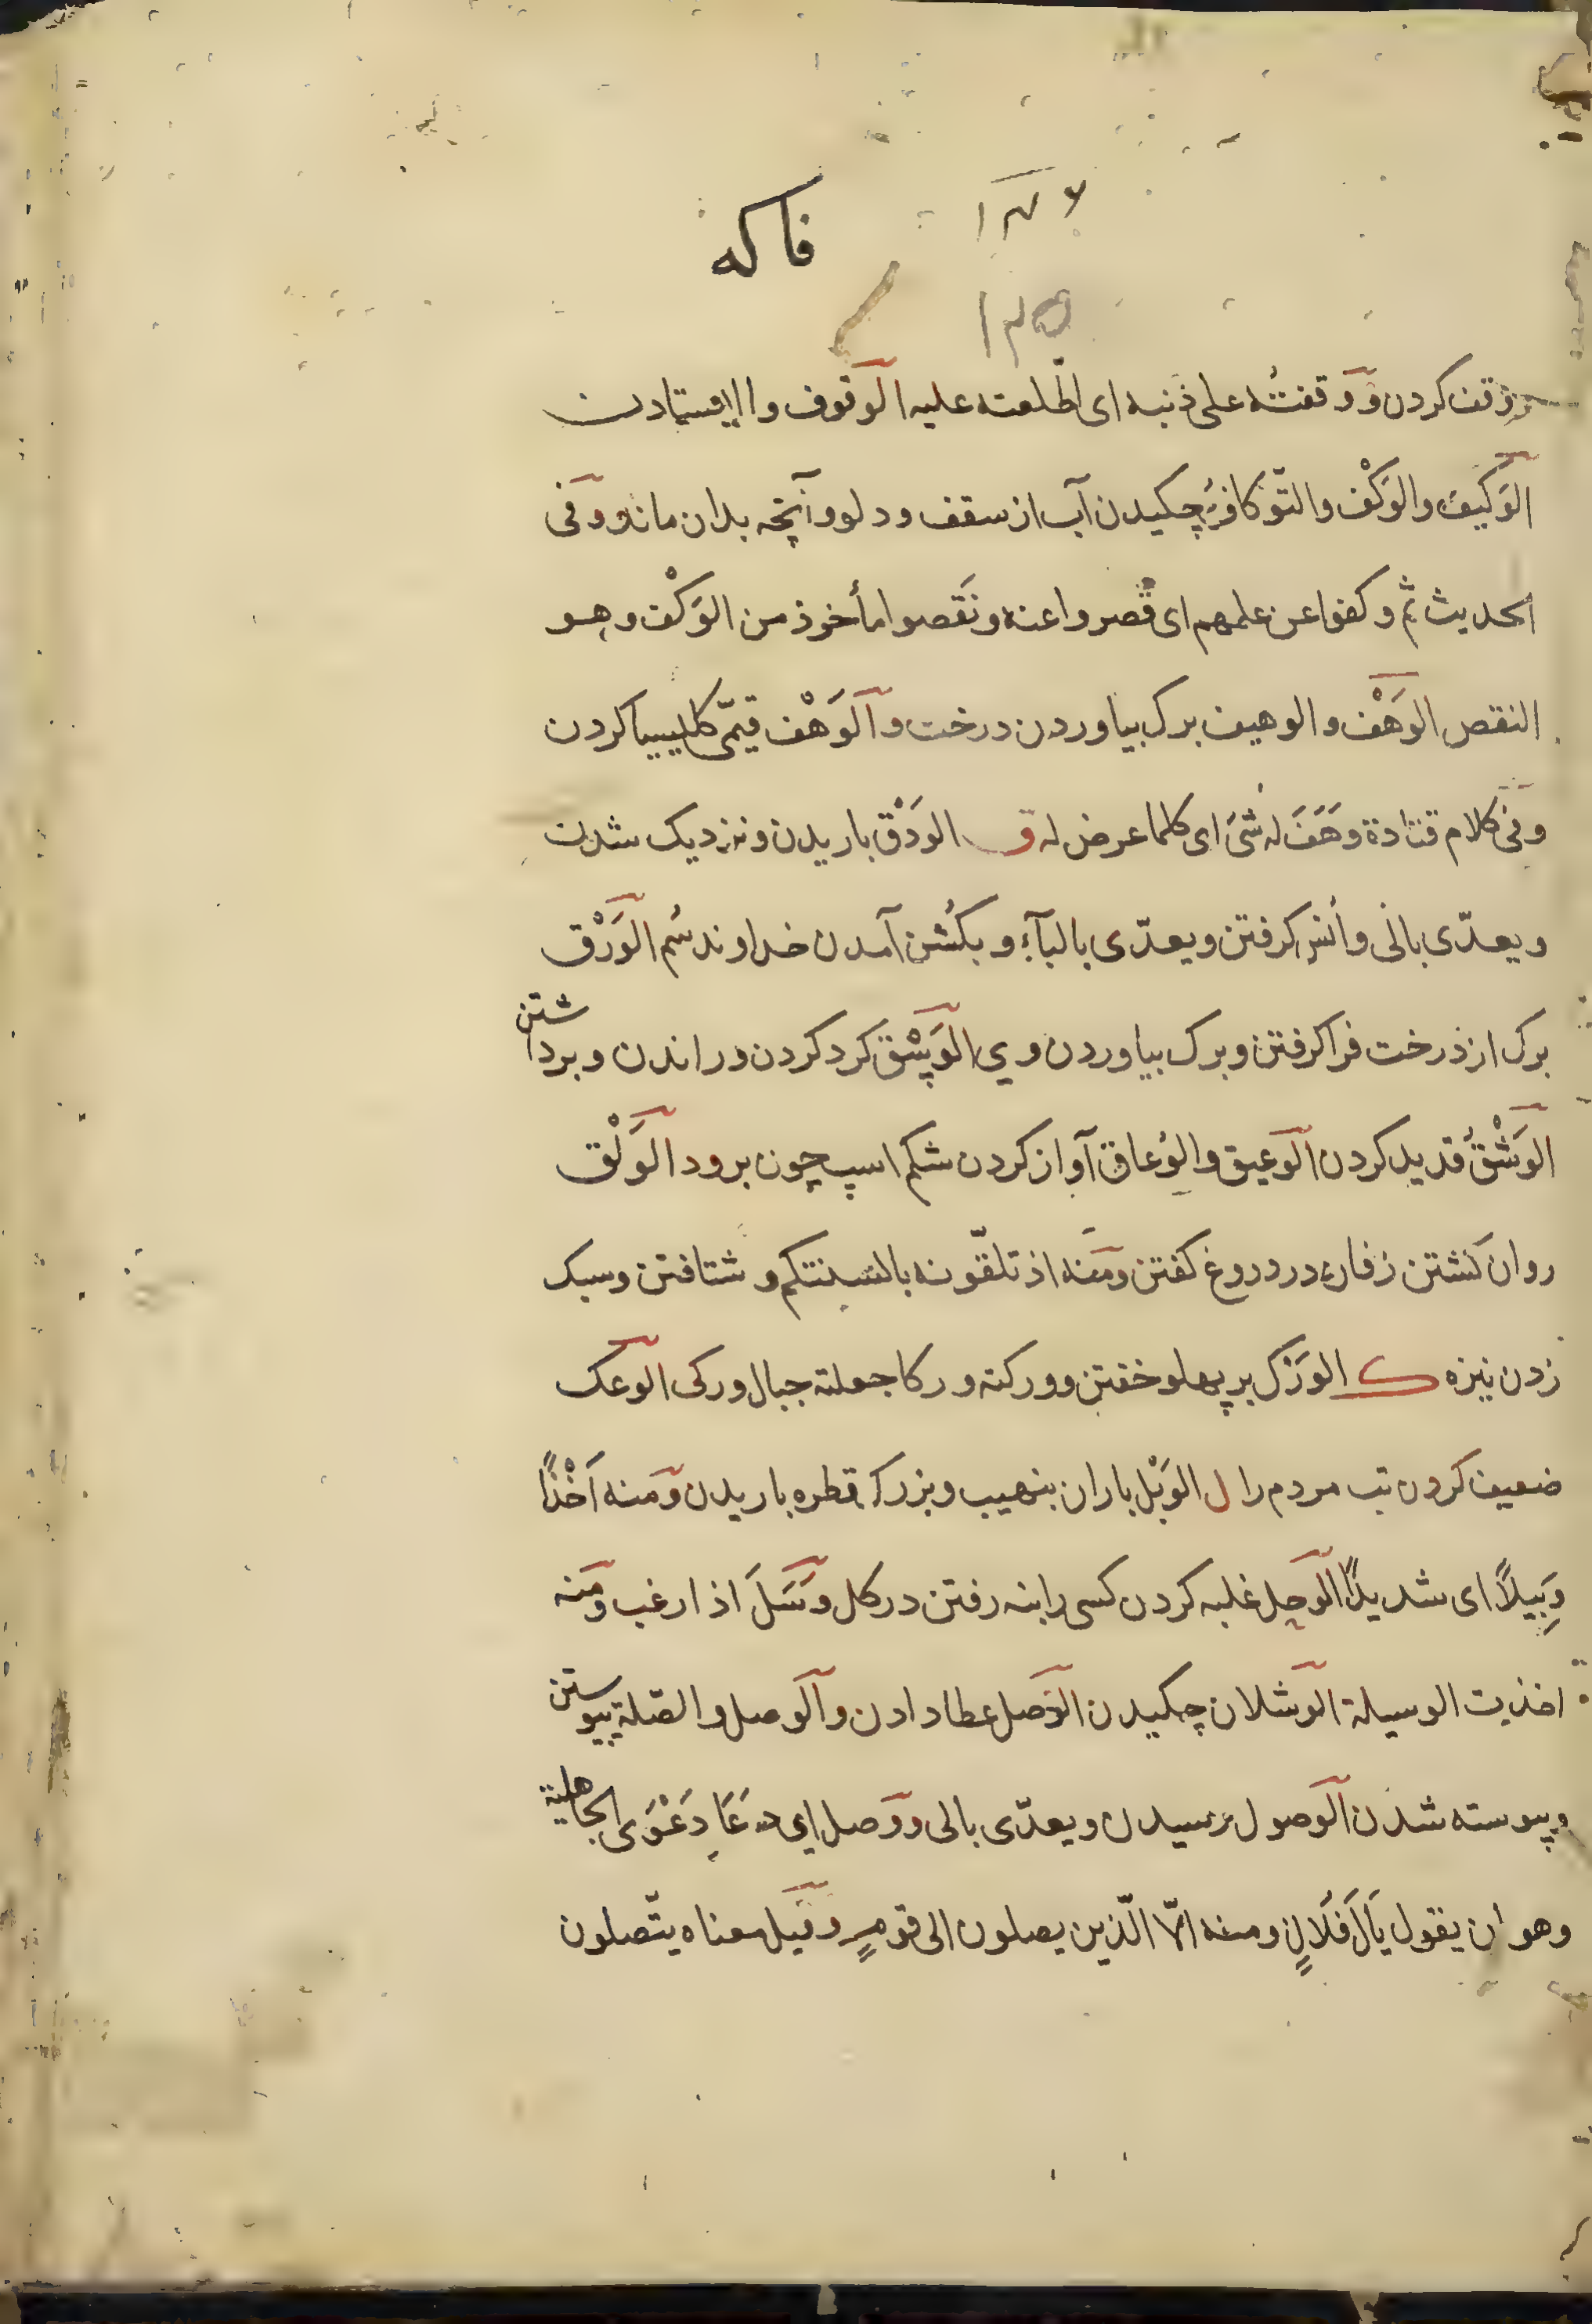 فاکه
۱۳۶
۱۳۵
وقف کردن ووقفتُه علی ذنبه ای اطّلعته علیه الوقوف واایستادن
الوَکیف والوَکْف والتّوکاف چکیدن آب از سقف ودلو وآنچه بدان ماند وفی
الحدیث ثم وکفوا عن علمهم ای قصروا عنه ونَقصوا مأخوذ من الوَکْف وهو
النقص الوَهْف والوهیف برک بیاوردن درخت والوَهْف قیمّی کلیسیا کردن
وفی کلام قتادة وهَفَ له شیَ ای کلما عرض له ق الودْق باریدن ونزدیک شدن
ویعدّی بالی وانس کرفتن ویعدّی بالبآء وبکُشن آمدن خداوند سُم الوَرْق
برک از درخت فراکرفتن وبرک بیاوردن وی الوَسْق کرد کردن وراندن وبرداشتن
الوَشْقُ قدید کردن الوعیق والوُعاق آواز کردن شکم اسپ چون برود الوَلْق
روان کشتن زفان در دروغ کفتن ومنه اذ تلقّونه بالسنتکم وشتافتن وسبک
زدن نیزه ک الوَرْک بر پهلو خفتن وورکته ورکا جعلته حیال ورکی الوعک
ضعیف کردن تب مردم را ل الوَبْل باران بنهیب وبزرک قطره باریدن ومنه اَخْذًا
وَبِیلاً ای شدیدًا الوحل غلبه کردن کسی را بنه رفتن در کل وَسَلَ اذا رغب ومنه
اخذیت الوسیلة الوشلان چکیدن الوصل عطا دادن والوصل والصّلة پیوستن
وپیوسته شدن الوصول رسیدن ویعدّی بالی ووصل ای دَعَا دَعْوَی الجاهلیة
وهو ان یقول یَالَ فُلَانٍ ومنه الاّ الّذین یصلون الی قومٍ وقیل معناه یتّصلون